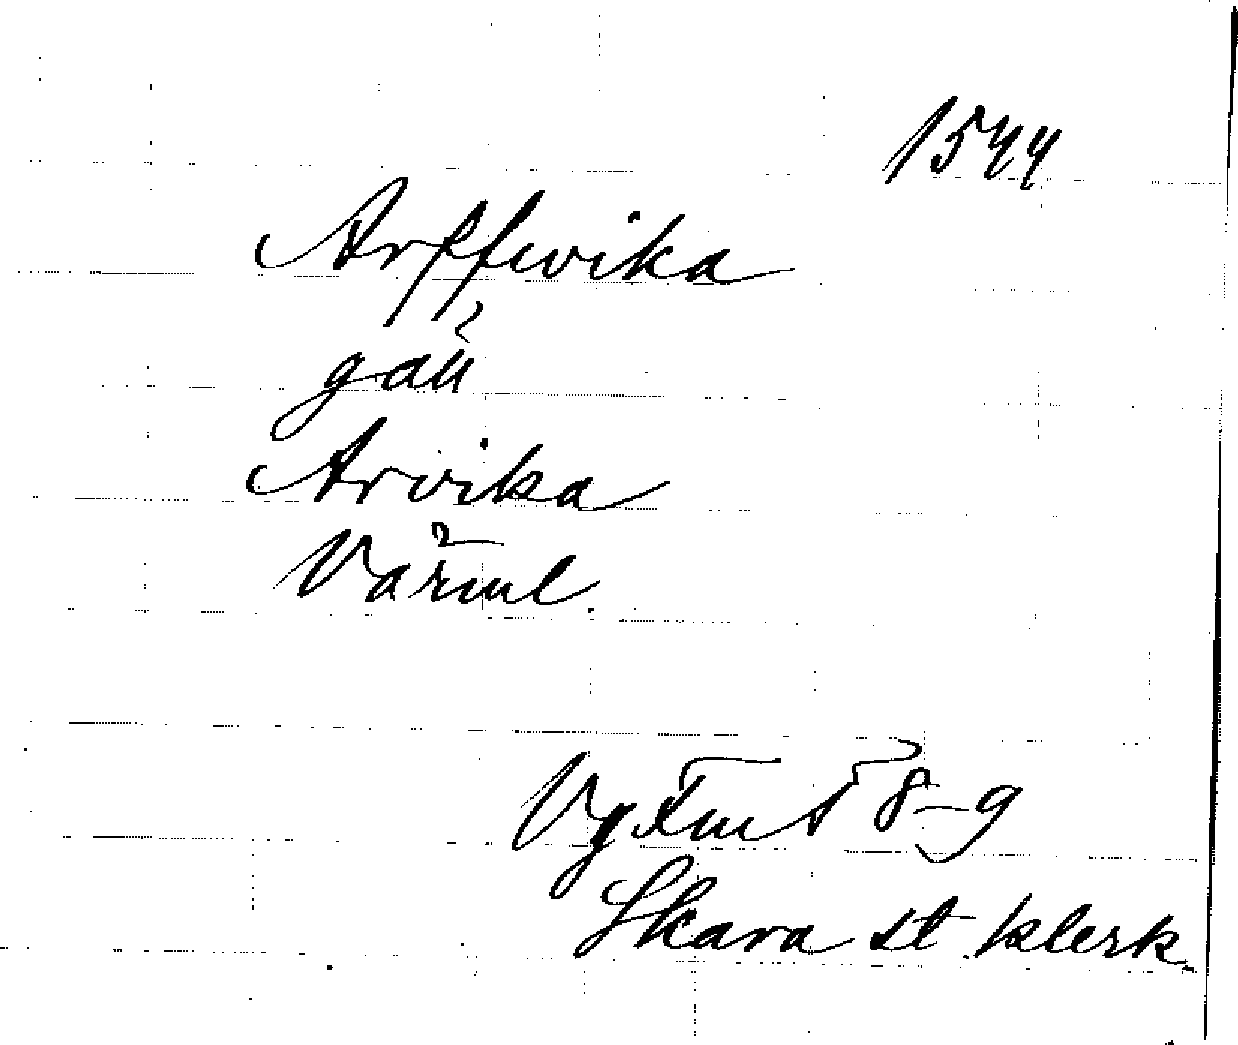 1544
Arpfwika
gäll
Arvika
Värml.
Vg Fm T 8-9
Skara st. klerk.